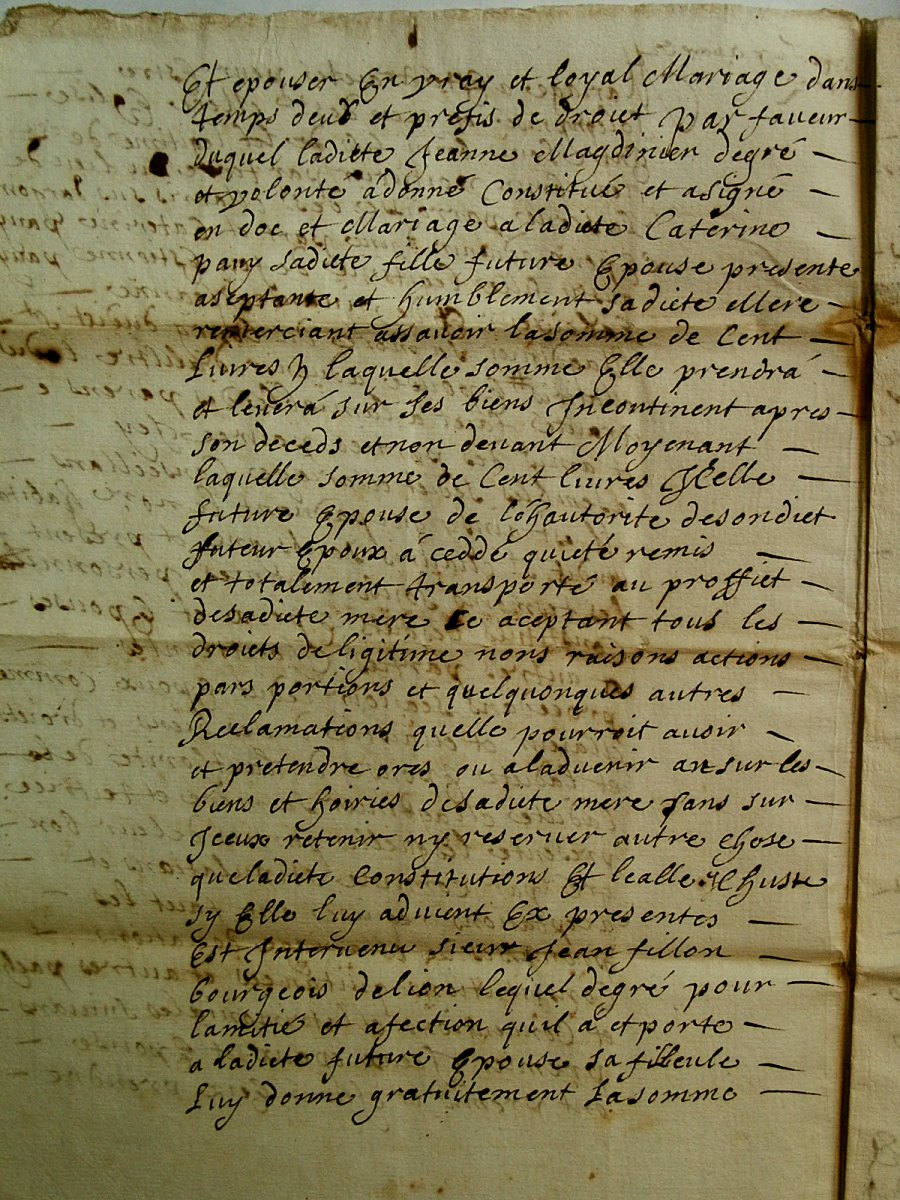 Et epouser En vray et loyal Mariage dans
temps deub et prefis de droict par faveur
duquel ladicte Jeanne Magdinier degré
et volonté á donné Constitué et asigné
en doc et Mariage a ladicte Caterine
pauy sadicte fille future Epouse presente
aseptante et humblement sadicte Mere
remerciant assavoir lasomme de Cent
Livres laquelle somme Elle prendrá
et leverá sur ses biens Incontinent apres
son deceds et non devant Moyenant
laquelle somme de Cent livres Icelle
future Epouse de l'hautorite desondict
futeur Epoux á cedde quicté remis
et totalement transporté au proffict
desadicte mere Ce aceptant tous les
droicts deligitime noms raisons actions
pars portions et quelquonques autres
Reclamations quelle pourroit avoir
et pretendre ores ou aladvenir sur les
biens et hoiries desadicte mere sans sur
Iceux retenir ny reserver autre chose
queladicte Constitutions Et lealle Echuste
sy Elle luy advient Ex presentes
Est Intervenu sieur Jean fillon
bourgeois delion lequel degré pour
lamitié et afection quil a et porte
a ladicte future Epouse sa filleule
Luy donne gratuitement Lasomme